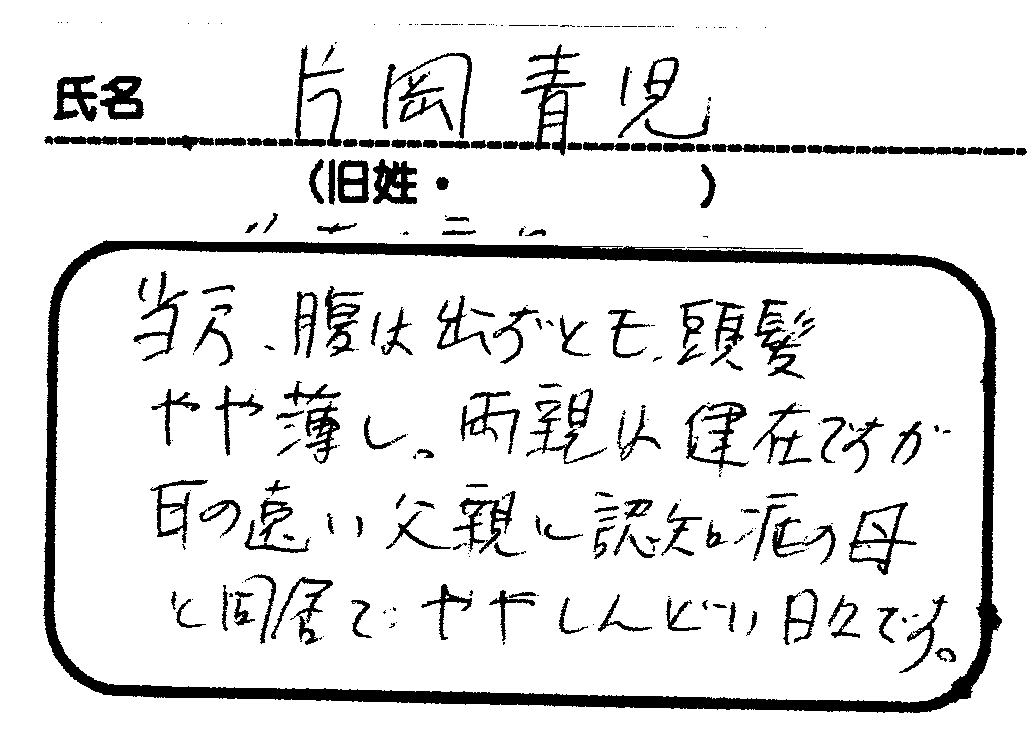 氏名 片岡青児
(旧姓・ )
当方、腹は出ずとも、頭髪
やや薄し。両親は健在ですが
耳の遠い父親に認知症の母
と同居で、ややしんどい日々です。